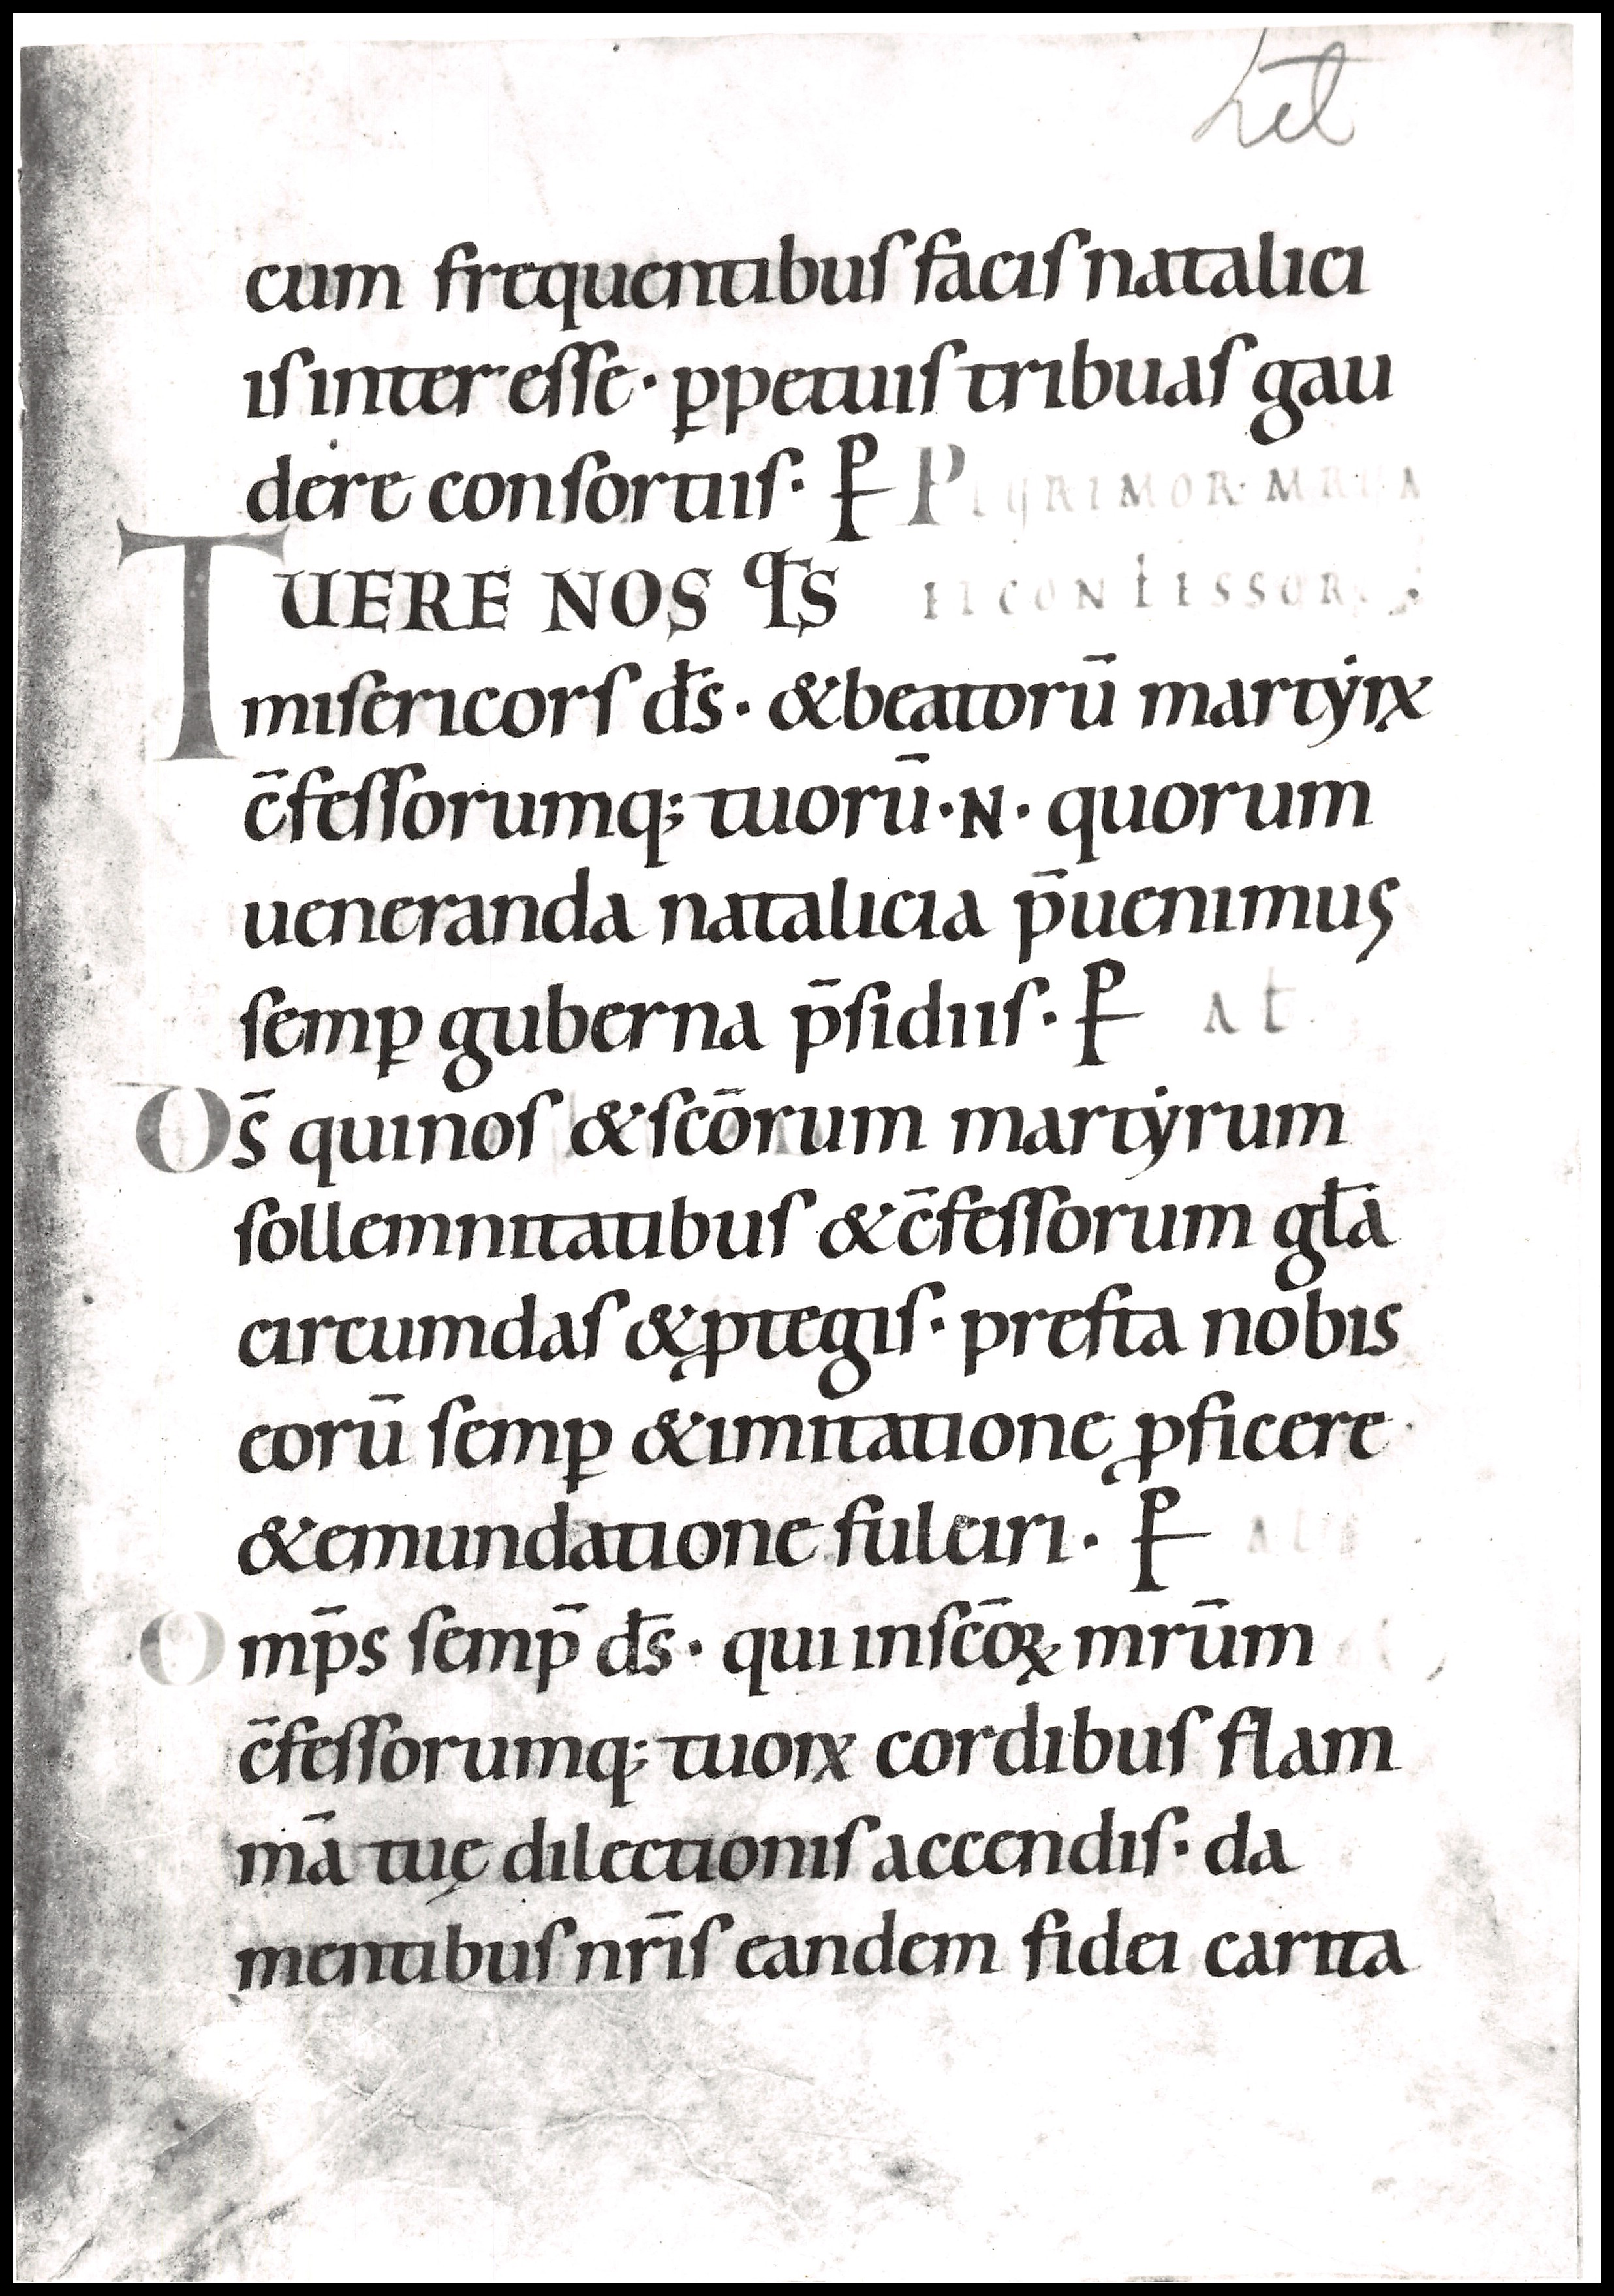 cum frequentibus facis natalici
is inter esse · ꝑpetuis tribuas gau
dere consortiis · P
TUERE NOS qs
misericors ds̄ · & beatorū martẏrꝝ
c̄fessorumq; tuorū · N · quorum
ueneranda natalicia p̄uenimus
semꝑ guberna p̄sidiis · P at
Ds̄ qui nos & scōrum martẏrum
sollemnitatibus & c̄fessorum glā
circumdas & ꝓtegis · presta nobis
eorū semꝑ & imitatione ꝓficere
& emundatione fulciri · P
Omp̄s semp̄ ds̄ · qui in scōꝝ mrūm
c̄fessorumq; tuoꝝ cordibus flam
mā tuę dilectionis accendis · da
mentibus nrīs eandem fidei carita